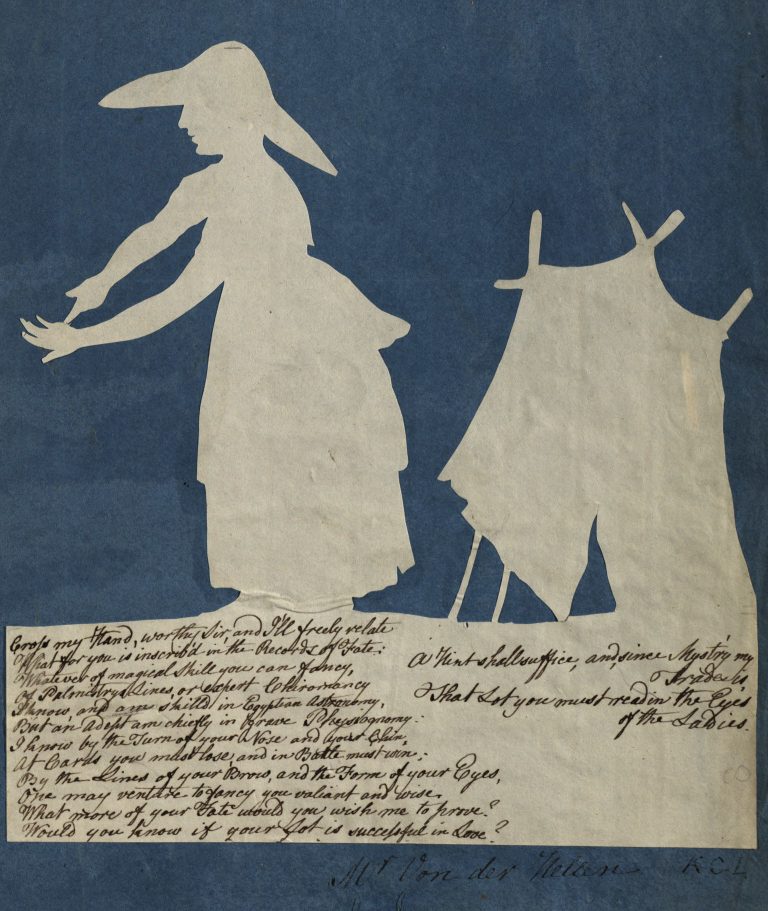 Cross my Hand, worthy Sir, and I'll freely relate
What for you is inscrib'd in the Records of Fate:
Whatever of magical skill you can fancy,
Of Palmistry's Lines, or expert Chiromancy
I know, and am skill'd in Egyptian Astronomy,
But an Adept am chiefly in grave Physiognomy:
I know by the Turn of your Nose and your Chin,
At Cards you must lose, and in Battle must win;
By the Lines of your Brow, and the Form of your Eyes,
One may venture to fancy you valiant and wise.
What more of your Fate would you wish me to prove?
Would you know if your Lot is successful in Love?
A Hint shall suffice, and, since Myst'ry my
Trade is
That Lot you must read in the Eyes
of the Ladies.
Mr Von der Helten KGL